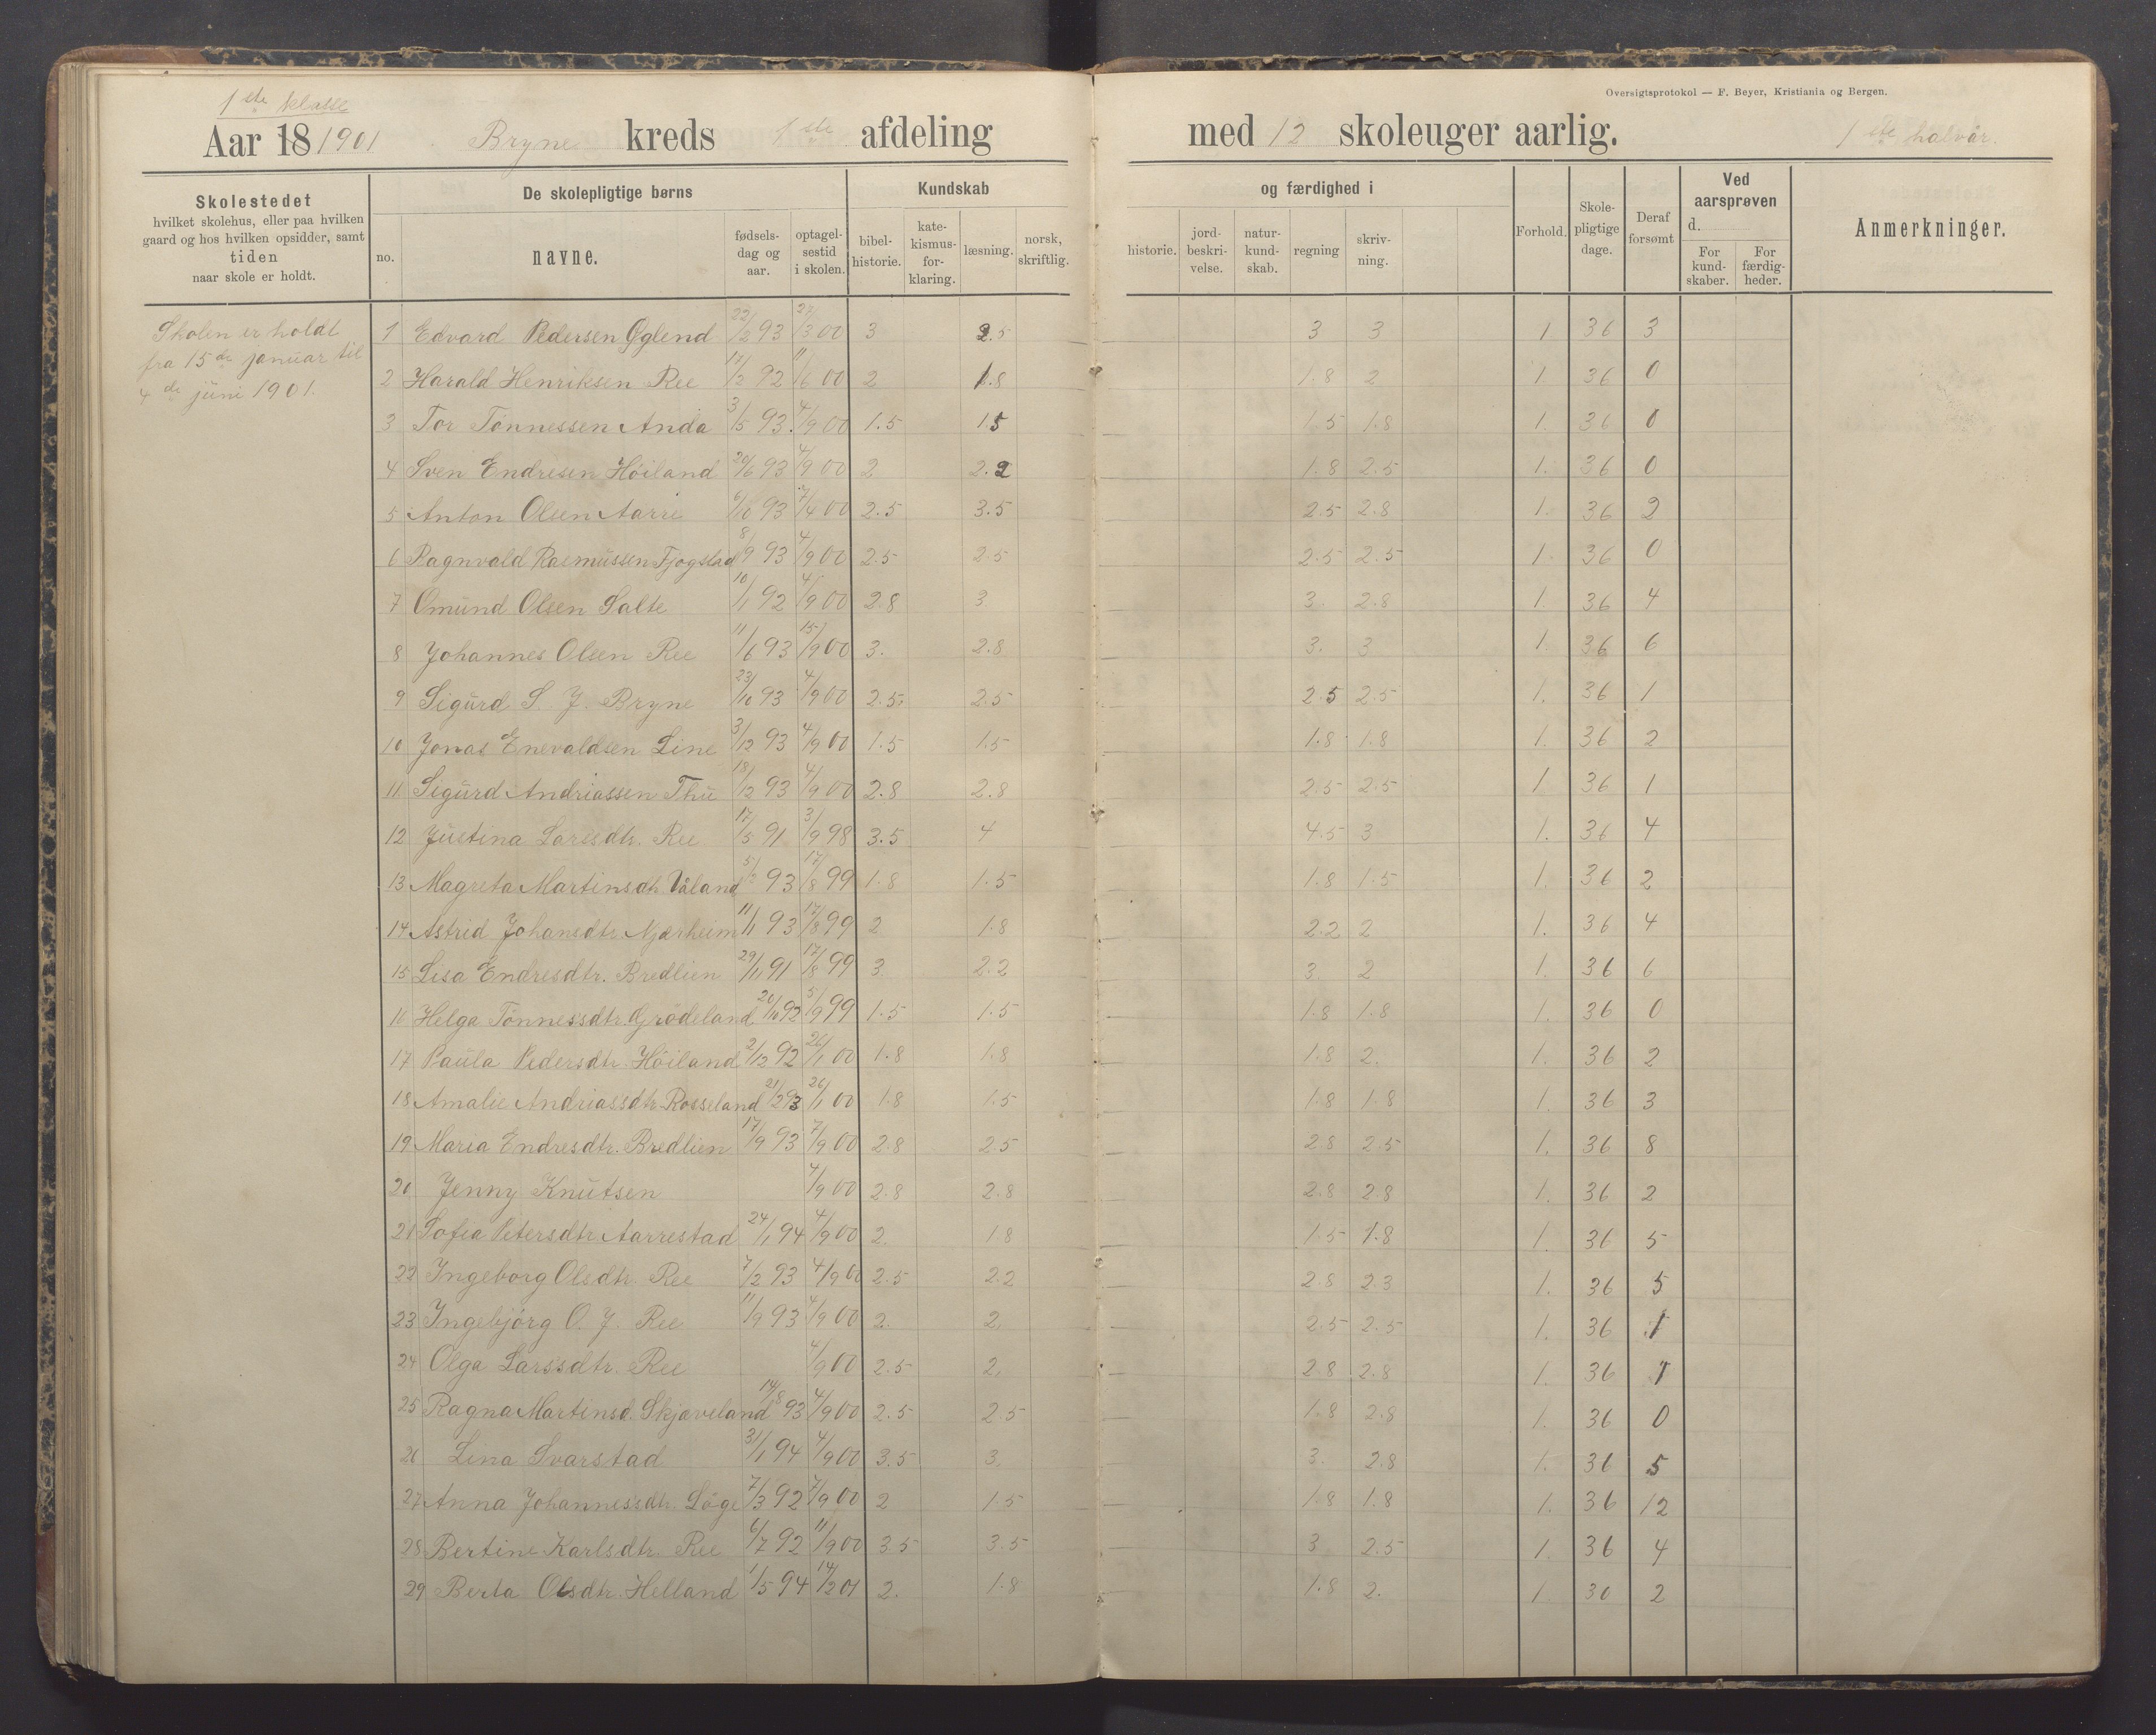 Oversigtsprotokol — F. Beyer, Kristiania og Bergen.
1ste klasse
Aar 18 1901 Bryne kreds 1ste afdeling med 12 skoleuger aarlig. 1ste halvår.
Skolestedet hvilket skolehus, eller paa hvilken gaard og hos hvilken opsidder, samt tiden naar skole er holdt.
De skolepligtige børns
no. navne. fødselsdag og aar. optagelsestid i skolen.
Kundskab og færdighed i
bibelhistorie. katekismusforklaring. læsning. norsk, skriftlig. historie. jordbeskrivelse. naturkundskab. regning skrivning.
Forhold. Skolepligtige dage. Deraf forsømt
Ved aarsprøven d.
For kundskaber. For færdigheder.
Anmerkninger.
Skolen er holdt
fra 15de januar til
4de juni 1901.
1 Edvard Pedersen Øglend 22/2 93 27/3 00 3 2.5 3 3 1 36 3
2 Harald Henriksen Ree 17/2 92 11/6 00 2 1.8 1.8 2 1. 36 0
3 Tor Tønnessen Anda 3/5 93. 4/9 00 1.5 15 1.5 1.8 1. 36 0
4 Sven Endresen Höiland 20/6 93 4/9 00 2 2.2 1.8 2.5 1. 36 0
5 Anton Olsen Aarre 6/10 93 7/4 00 2.5 3.5 2.5 2.8 1. 36 2
6 Ragnvald Rasmussen Fjogstad 8/9 93 4/9 00 2.5 2.5 2.5 2.5 1. 36 0
7 Omund Olsen Salte 10/1 92 4/9 00 2.8 3 3. 2.8 1. 36 4
8 Johannes Olsen Ree 11/6 93 15/9 00 3. 2.8 3. 3 1. 36 6
9 Sigurd S. J. Bryne 23/10 93 4/9 00 2.5. 2.5 2 5 2.5 1. 36 1
10 Jonas Enevaldsen Line 3/12 93 4/9 00 1.5 1.5 1.8 1.8 1. 36 2
11 Sigurd Andriassen Thu 18/12 93 4/9 00 2.8 2.8 2.5 2.5 1. 36 1
12 Justina Larsdtr. Ree 17/5 91 3/9 98 3.5 4 4.5 3 1. 36 4
13 Magreta Martinsdtr. Våland 93 17/8 99 1.8 1.5 1.8 1.5 1. 36 2
14 Astrid Johansdtr. Njærheim 11/1 93 17/8 99 2 1.8 2.2 2 1. 36 4
15 Lisa Endresdtr. Bredlien 29/11 91 17/8 99 3. 2.2 3. 2 1. 36 6
16 Helga Tönnessdtr. Grödeland 20/10 92 5/9 99 1.5 1.5 1.8 1.8 1. 36 0
17 Paula Pedersdtr. Höiland 2/12 92 26/1 00 1.8 1.8 1.8 2. 1. 36 2
18 Amalie Andriassdtr. Rosseland 21/2 93 26/1 00 1.8 1.5 1.8 1.8 1. 36 3
19 Maria Endresdtr. Bredlien 17/9 93 7/9 00 2.8 2.5 2.8 2.5 1. 36 8
20 Jenny Knutsen 4/9 00 2.8 2.8 2.8 2.8 1. 36 2
21 Sofia Petersdtr. Aarrestad 24/1 94 4/9 00 2. 1.8 1.5 1.8 1. 36 5
22 Ingeborg Olsdtr. Ree 7/2 93 4/9 00 2.5 2.2 2.8 2.3 1. 36 5
23 Ingebjörg O. J. Ree 11/9 93 4/9 00 2. 2. 2.5 2.5 1. 36 1
24 Olga Larssdtr. Ree 4/9 00 2.5 2. 2.8 2.8 1. 36 1
25 Ragna Martinsd. Skjæveland 14/8 93 4/9 00 2.5 2.5 1.8 2.8 1. 36 0
26 Lina Svarstad 31/1 94 4/9 00 3.5 3. 3. 2.8 1. 36 5
27 Anna Johannessdtr. Löge 7/3 92 7/9 00 2 1.5 1.8 1.8 1. 36 12
28 Bertine Karlsdtr. Ree 6/7 92 11/9 00 3 5 3.5 3 2.5 1. 36 4
29 Berta Olsdtr. Helland 1/5 94 14/2 01 2. 1.8 1.8 2. 1. 30 2